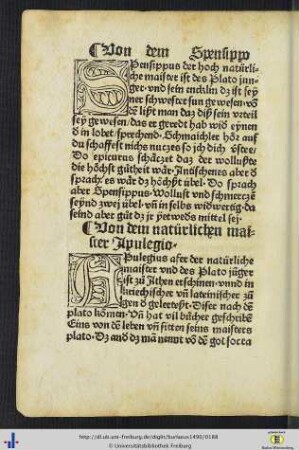 Von dem Spensippo
SPensippus der hoch natürli-
che maister ist des Plato jun-
ger. vnd sein encklin dz ist sey
ner schwester sun gewesen. vō
dē lißt man daz diß sein vrteil
sey gewesen/ das er geredt hab wid eynen
d in lobet/ sprechend. Schmaichler hör auf
du schaffest nichs nutzes so jch dich ỽstee.
Do epicurus schätzet daz der wollußte
die höchst gütheit wär. Antischenes aber d
sprach. es wär dz höchst übel. Do sprach
aber Spensippus. Wollust vnd schmerczē
seynd zwei übel. vn̄ in selbs widwertig. da
seind aber gūt dz je yetweds mittel sey.
Von dem natürlichen mai-
ster Apulegio.
APulegius afer der natürliche
maister vnd des Plato jūger
ist zū Athen erschinen. vnnd in
kriechischer vn̄ lateinischer zū
gen d gelertest. Diser nach dē
plato kōmen. Vn̄ hat vil bücher geschribē
Eins von dē leben vn̄ sitten seins maisters
plato. Dz and dz mā nennt vō dē got socra
http://dl.ub.uni-freiburg.de/diglit/burlaeus1490/0188
© Universitätsbibliothek Freiburg